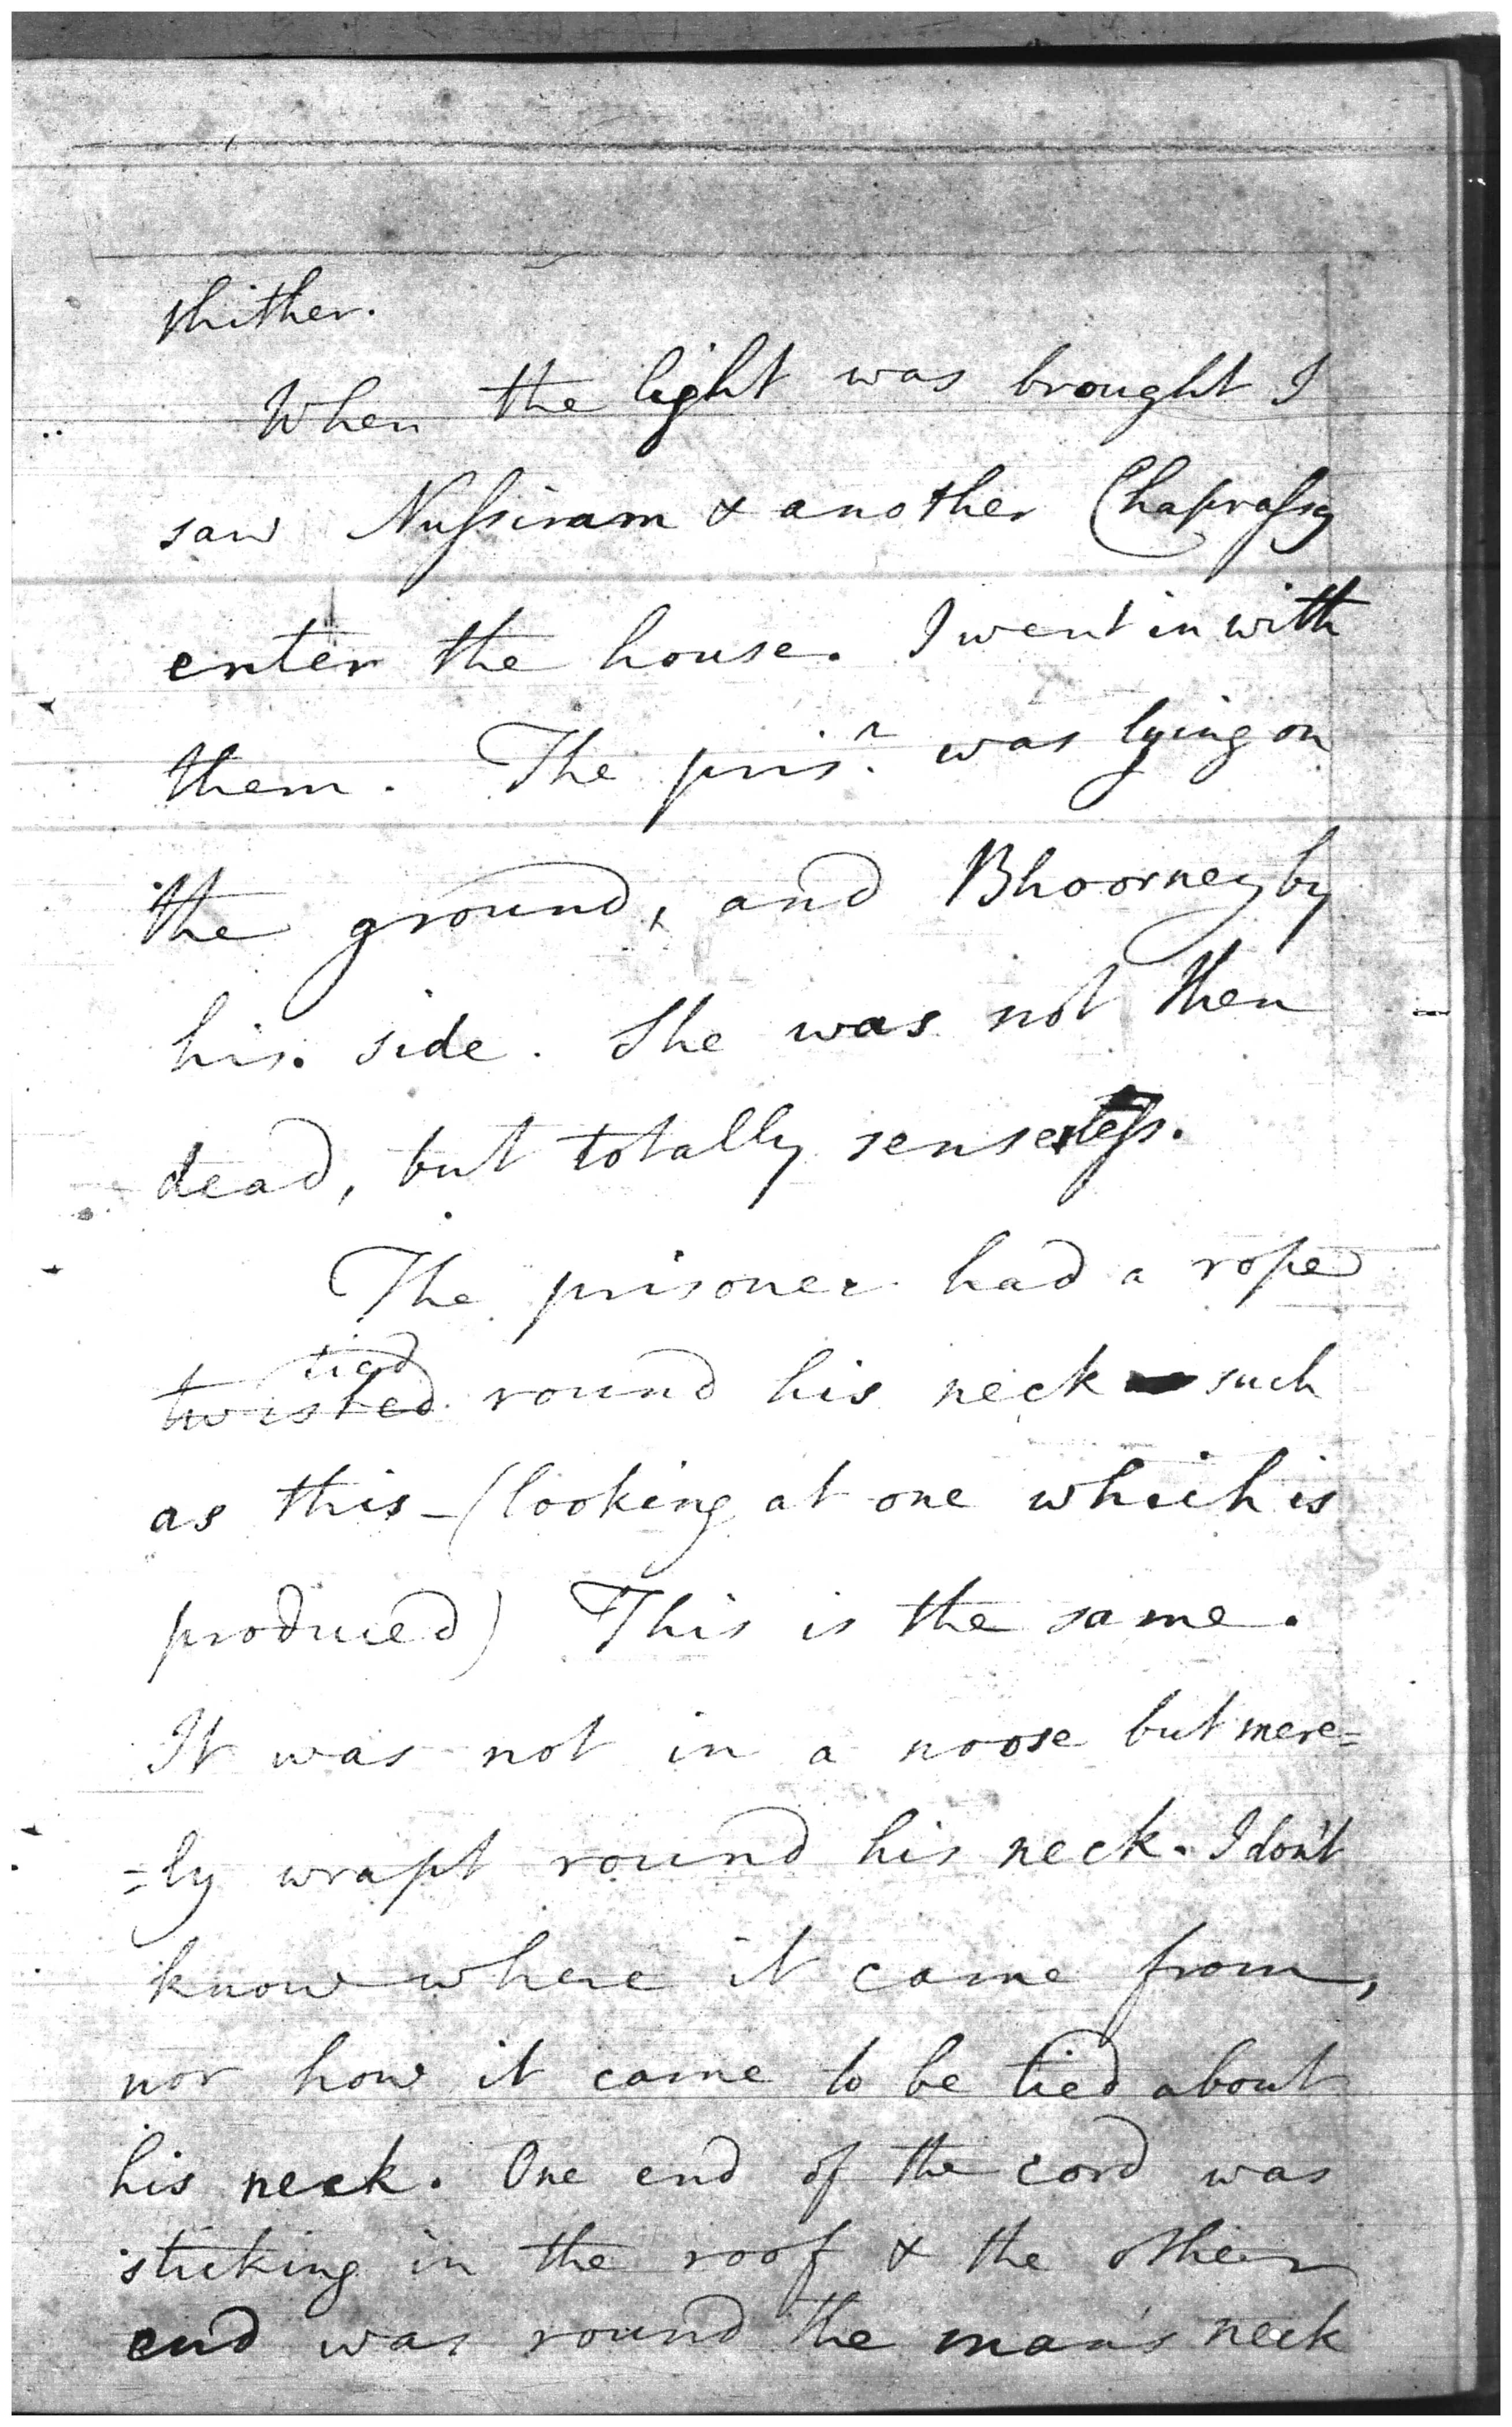 thither.
When the light was brought I
saw Nussiram & another Chaprassy
enter the house. I went in with
them. The prisr. was lying on
the ground, and Bhoorney by
his side. She was not then
dead, but totally senseless.
The prisoner had a rope
tied
twisted round his neck such
as this - (looking at one which is
produced) This is the same.
It was not in a noose but mere=
=ly wrapt round his neck. I don't
know where it came from,
nor how it came to be tied about
his neck. One end of the cord was
sticking in the roof & the other
end was round the man's neck